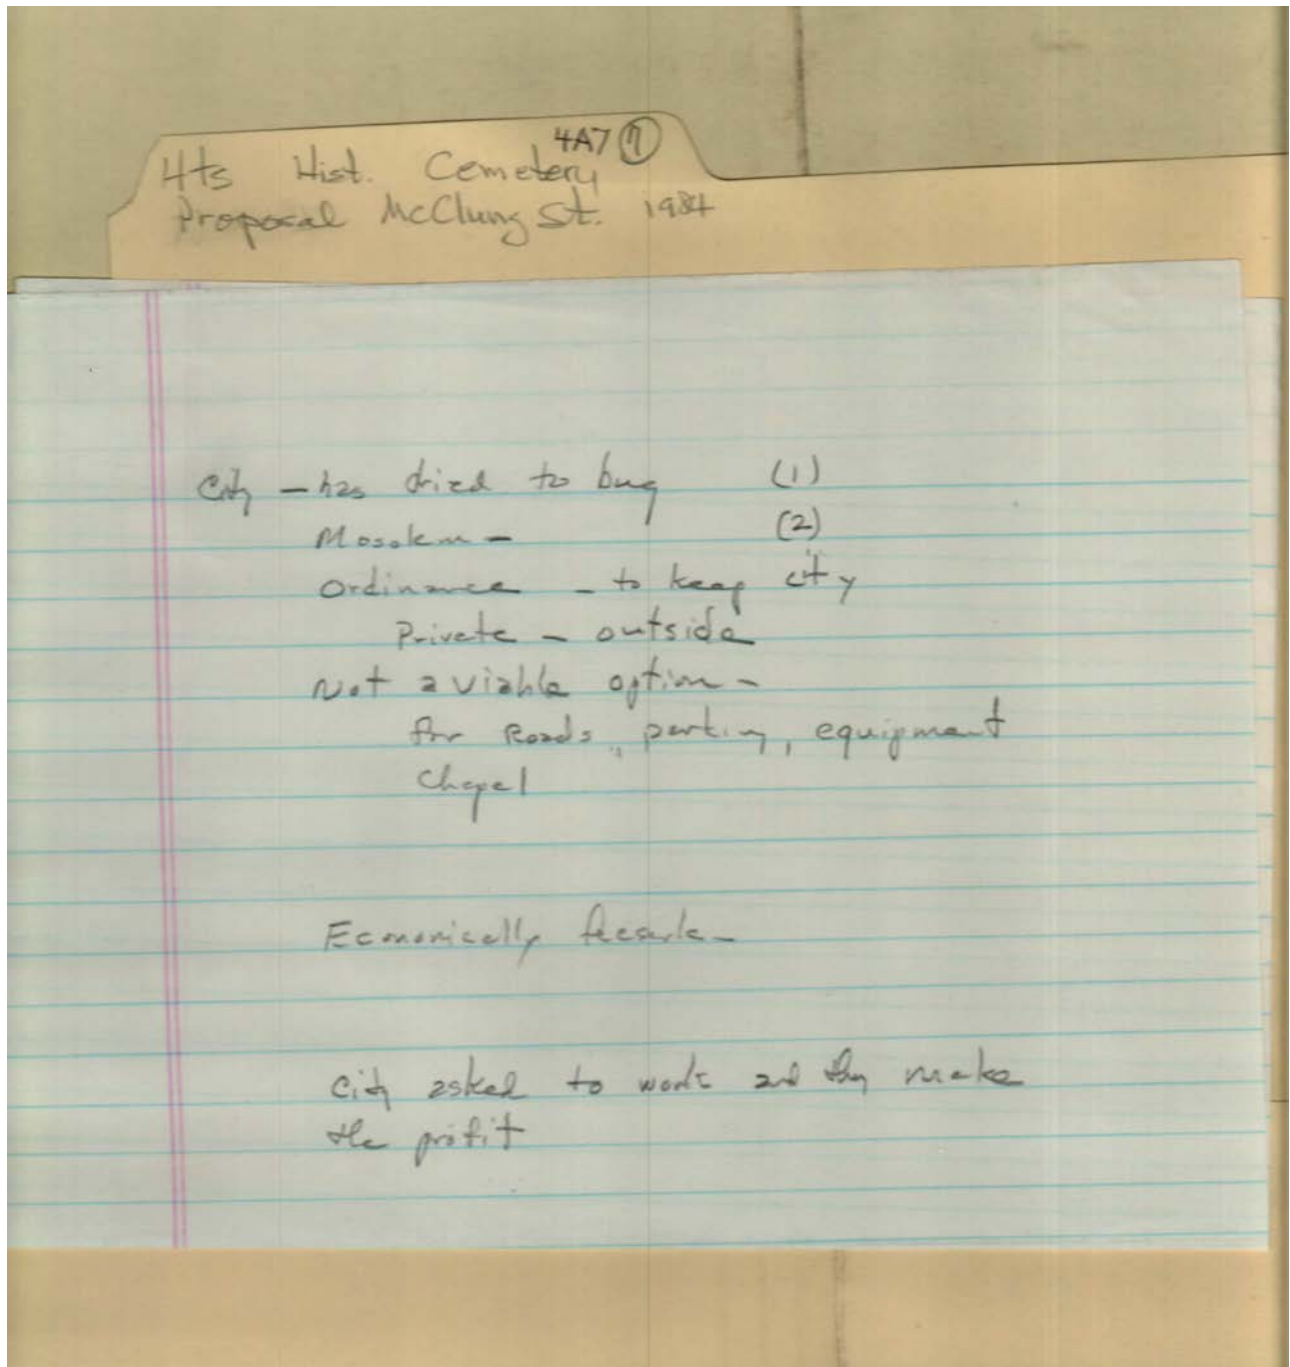 4A7 (7)
Hts Hist. Cemetery
Proposal McClung St. 1984
City - has tried to buy (1)
Mosolem - (2)
Ordinance - to keep city
Private - outside
Not a viable option -
for Roads, parking, equipment
Chapel
Economically
City asked to work and they make
the profit